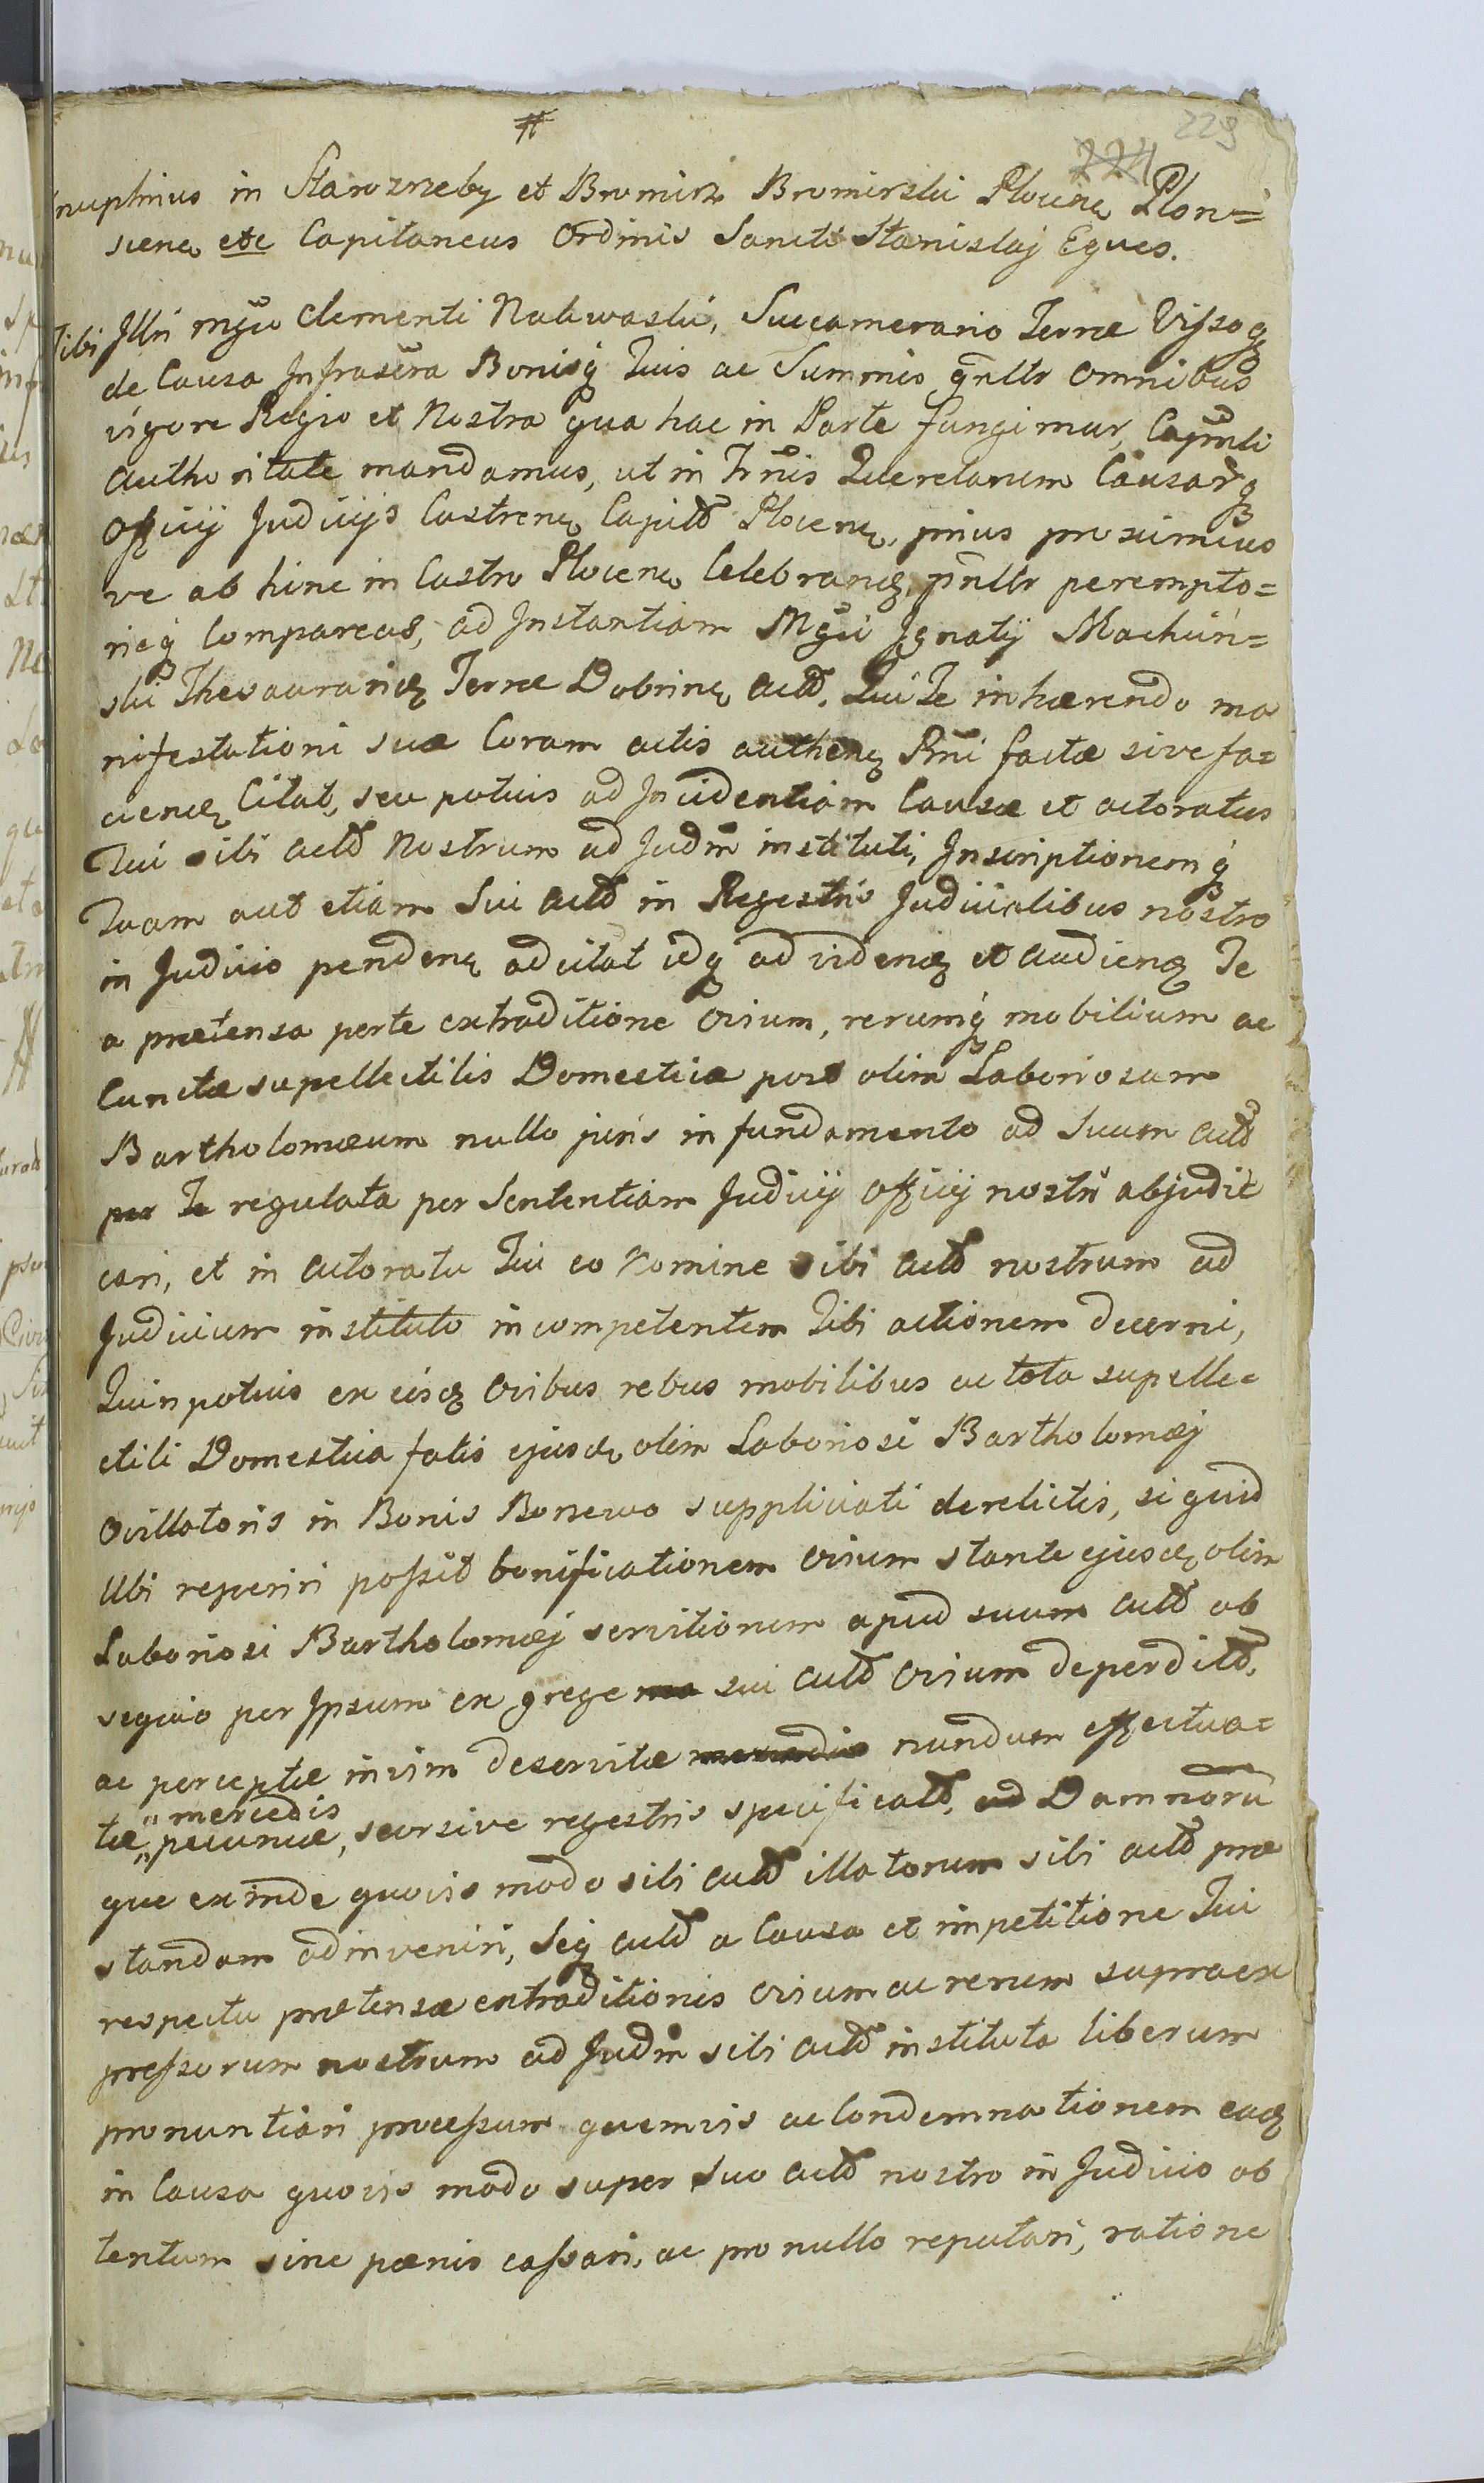 #
229
224
nuphrius in Starozreby et Bromirz Bromirski Plocenę Plon=
scenę etc Capitaneus Ordinis Sancti Stanislaj Eques.
Tibi Illri mgco Clementi Nakwaski, Succamerario Terræ Vissog
de Causa Infrascra Bonisq Tuis ac Summis gnltr omnibus
vigore Regio et Nostra qua hac in Parte fungimur, Capitnli
authoritate mandamus, ut in Trnis Querelarum Causarq
Officij Judicijs Castrenę Capitt Plocenę, prius proximius
ve ab hinc in Castro Plocenę Celebranę, pnltr perempto=
rieq Compareas, ad Instantiam Mgci Ignatij Machciń=
ski Thesaurarię Terræ Dobrinę actt. Qui Te inhærendo ma
nifestationi suæ Coram actis authenę Prni factæ sive fa=
ciendæ Citat, seu potius ad Incidentiam Causæ et actoratus
Tui sibi actt Nostrum ad Judm instituti, Inscriptionemq
Tuam aut etiam Sui actt in Regestris Judicialibus nostro
in Judicio pendenę adcitat idq ad videnę et audienę Te
a prætensa perte extraditione Ovium, rerumq mobilium ac
Cunctæ supellectilis Domesticæ post olim Laboriosum
Bartholomæum nullo juris in fundamento ad Suum actt
per Te regulata per Sententiam Judicij Officij nostri abjudic
cari, et in actoratu Tui eo Nomine sibi actt nostrum ad
Judicium instituto incompetentem Tibi actionem decerni,
Quinpotius ex eisdę Ovibus rebus mobilibus ac tota supelle=
ctili Domestica fatis ejusdę olim Laboriosi Bartholomæj
Ovillatoris in Bonis Borzewo suppliciati derelictis, si quid
Ubi reperiri possit bonificationem Ovium stante ejusdę olim
Laboriosi Bartholomæj servitiorum apud suum actt ob
segvio per Ipsum ex grege sui actt Ovium deperditt,
ac perceptæ invim deservitæ nundum effectua=
mercedis
tæ pecuniæ, seorsive regestris specificatt, ad Damnoru
que exinde quovis modo sibi actt illatorum sibi actt præ
standam adinveniri, Seq actt a Causa et impetitione Tui
respectu prætensæ extraditionis Ovium ac rerum supraex
pressorum nostrum ad Judm sibi actt instituta liberum
pronuntiari processum quemvis ac Condemnationem eadę
in Causa quovis modo super Suo actt nostro in Judicio ob
tentum sine pænis cassari, ac pro nullo reputari, ratione